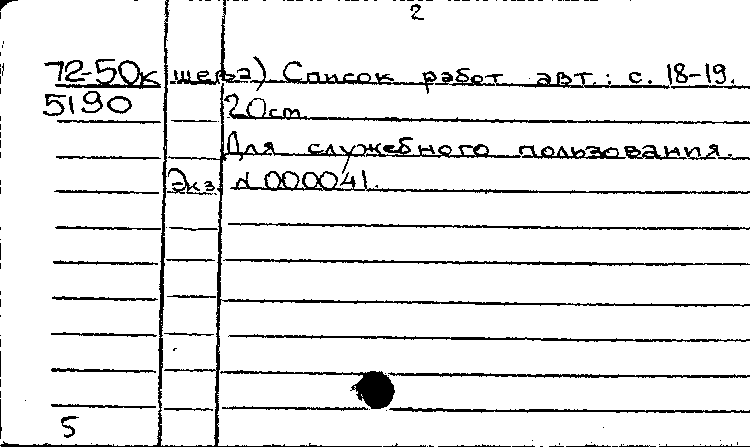 2
72-50к шельэ) Список работ авт.: с. 18-19.
5190 20cm
Для служебного пользования.
Экз. N 000041.
5